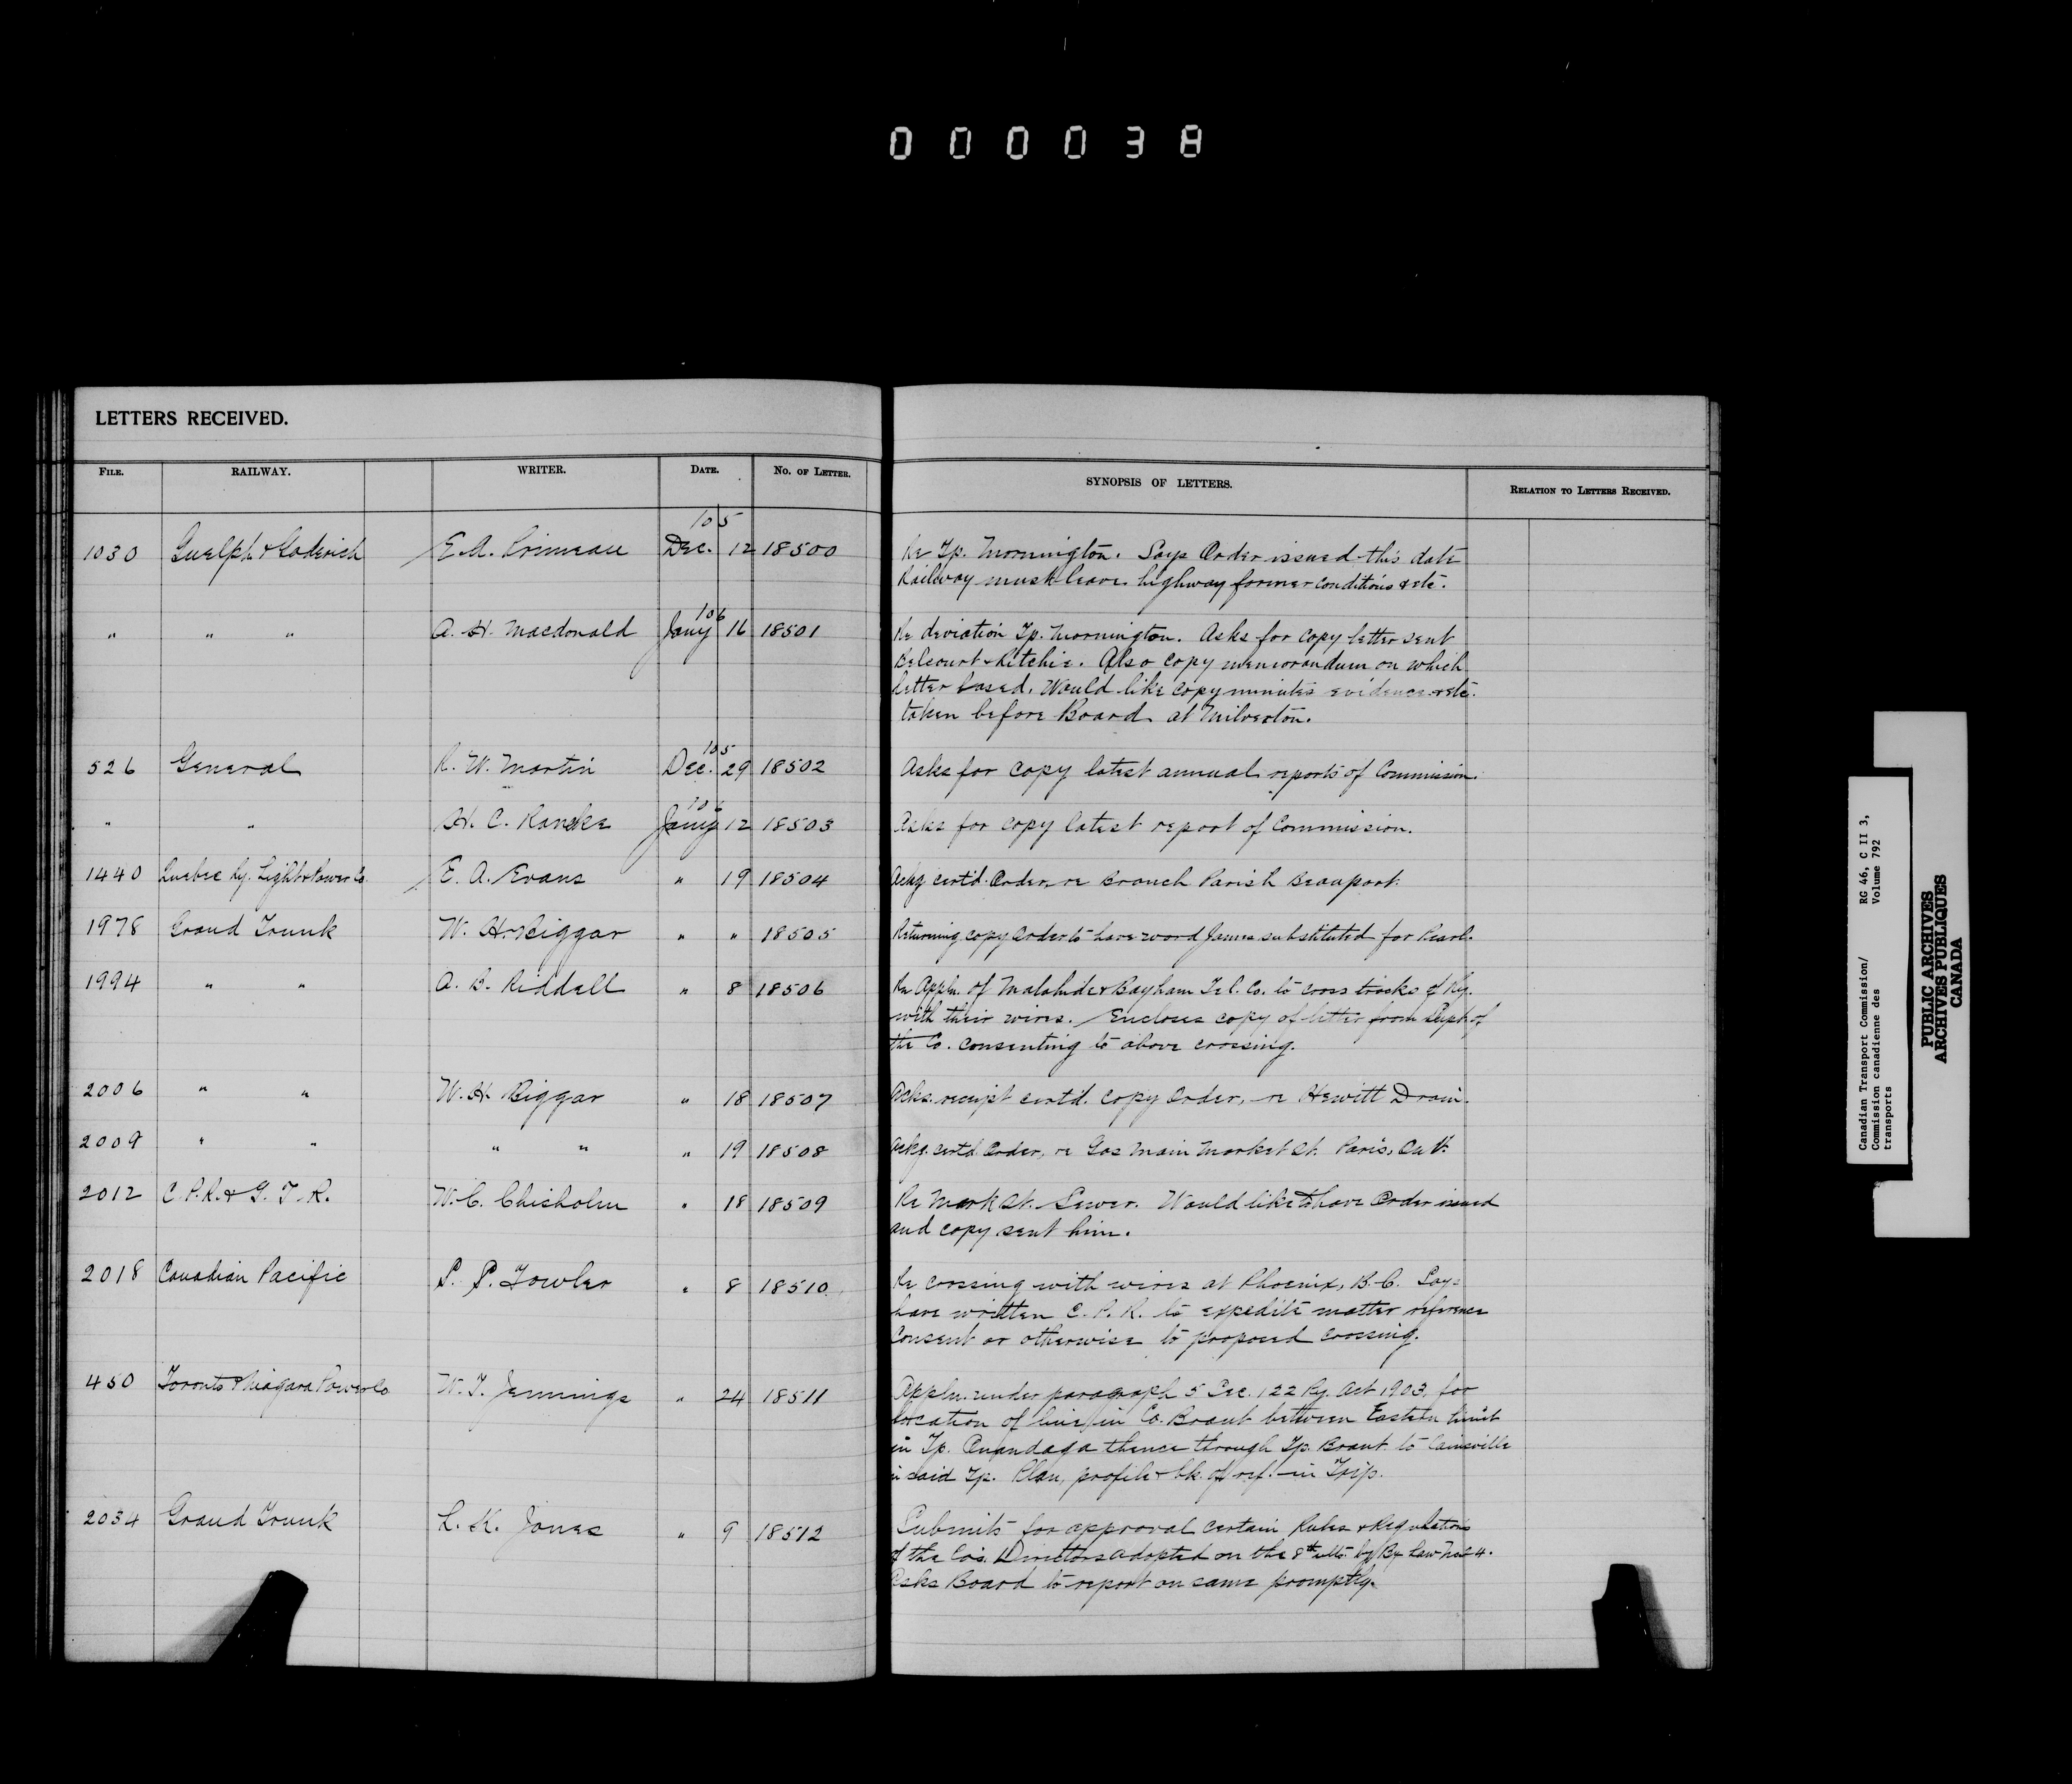 000038
LETTERS RECEIVED.
FILE. RAILWAY. WRITER. DATE. NO. OF LETTER. SYNOPSIS OF LETTERS. RELATION TO LETTERS RECEIVED.
105
1030 Guelph & Goderich E. A. Primeau Dec. 12 18500 Re Tp. Mornington. Says Order issued this date
Railway must leave highway former conditions & etc.
106
" " " A. H. Macdonald Jany 16 18501 Re deviation Tp. Mornington. Asks for copy letter sent
Belcourt & Ritchie. Also copy memorandum on which
letter based. Would like copy minutes evidence & etc.
taken before Board at Milverton.
105
526 General R. W. Martin Dec. 29 18502 Asks for copy latest annual reports of Commission.
106
" " H. C. Jany 12 18503 Asks for copy latest report of Commission.
1440 Quebec Ry. Light & Power Co. E. A. Evans " 19 18504 Ackg certd. Order, re Branch Parish Beauport.
1978 Grand Trunk W. H. Biggar " " 18505 Returning copy Order to have word James substituted for Pearl.
1994 " " A. B. Riddell " 8 18506 Re Appln. of Malahide & Bayham Tel. Co. to cross tracks of Ry.
with their wires. Encloses copy of letter from Supt. of
the Co. consenting to above crossing.
2006 " " W. H. Biggar " 18 18507 Acks. receipt certd. copy Order, re Hewitt Drain.
2009 " " " " " 19 18508 Ackg. certd Order, re Gas Main Market St. Paris, Ont.
2012 C. P. R. & G. T. R. W. C. Chisholm " 18 18509 Re Mark St. Sewer. Would like to have Order issued
and copy sent him.
2018 Canadian Pacific S. P. Fowler " 8 18510 Re crossing with wires at Phoenix, B. C. Says
have written C. P. R. to expedite matter reference
consent or otherwise to proposed crossing.
450 Toronto & Niagara Power Co W. T. Jennings " 24 18511 Appln. under paragraph 5 Sec. 122 Ry. Act 1903, for
location of line in Co. Brant between Eastern limit
in Tp. Onandaga thence through Tp. Brant to Cainsville
in said Tp. Plan, profile & bk. of ref. in Trip.
2034 Grand Trunk L. K. Jones " 9 18512 Submits for approval certain Rules & Regulations
of the Co's. Directors adopted on the 8th ulto. by By Law No 4.
Asks Board to report on same promptly.
Canadian Transport Commission/
Commission canadienne des
transports
RG 46, C II 3,
Volume 792
PUBLIC ARCHIVES
ARCHIVES PUBLIQUES
CANADA